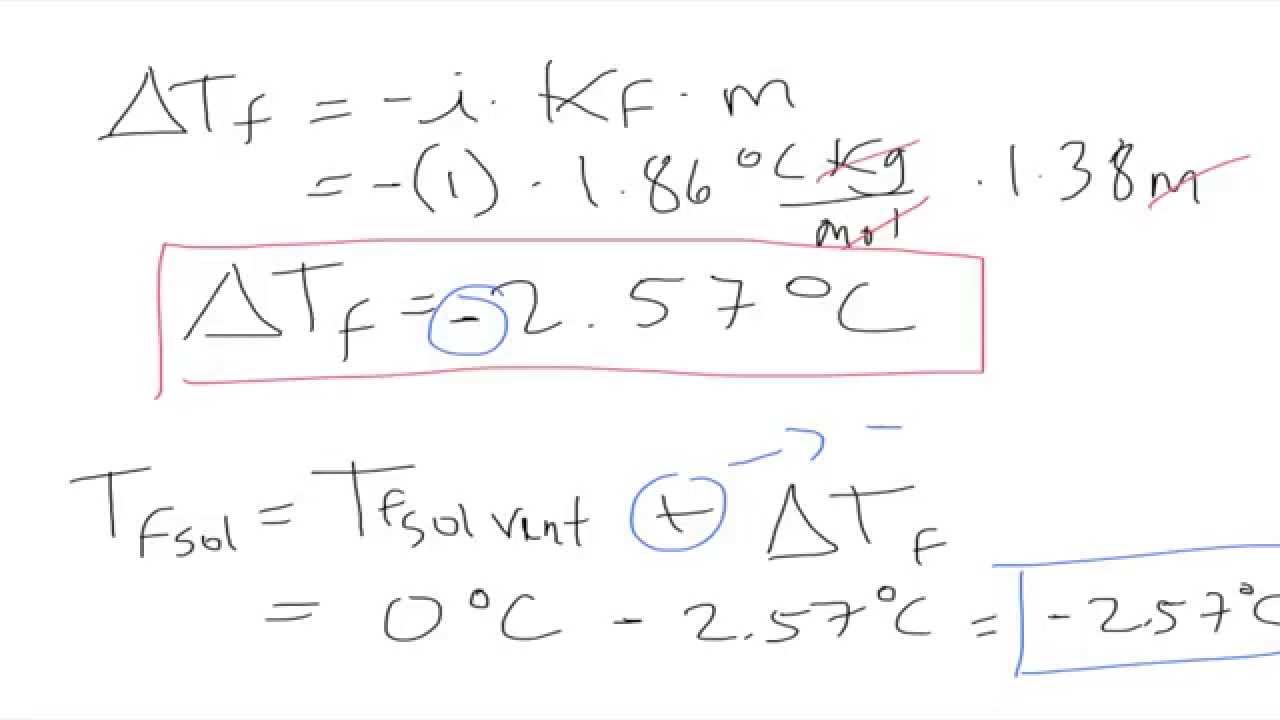 ΔTf = -i · Kf · m
= -(1) · 1.86 °C Kg/mol · 1.38m
ΔTf = -2.57 °C
→ -
Tfsol = Tfsolvent + ΔTf
= 0°C - 2.57°C = -2.57°C